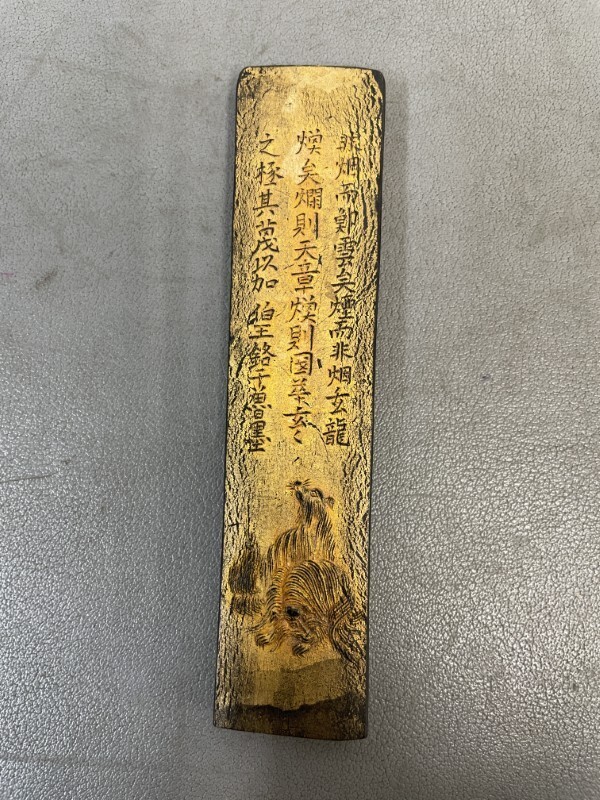 非烟而卿雲矣煙而非烟玄龍
煥矣爛則天章煥則国華玄〻
之極其蔑以加 墨